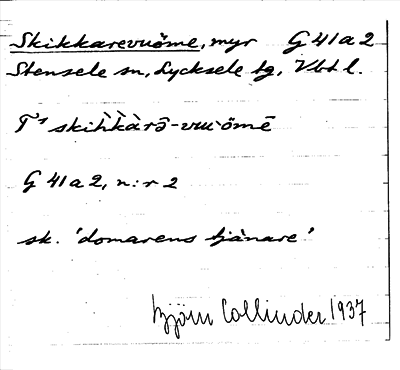 Skikkarevuöme, myr G 41 a 2
Stensele sn, Lycksele tg, Vbt l.
skihkàrē-vuu·ömē
G 41 a 2, n:r 2
sk. 'domarens tjänare'
Björn Collinder 1937